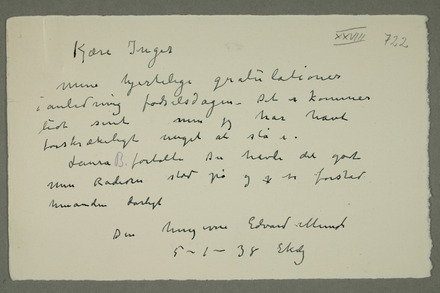 XXVIII 722
Kjære Inger
mine hjertelige gratulationer
i anledning fødselsdagen. Det kommer
lidt sent men jeg har havt
forskrækkeligt meget at stå i.
Laura B. fortalte Du havde det godt
men Radioen stod på og vi forstod
hinanden dårligt
Din Edvard Munch
5-1-38 Ekely